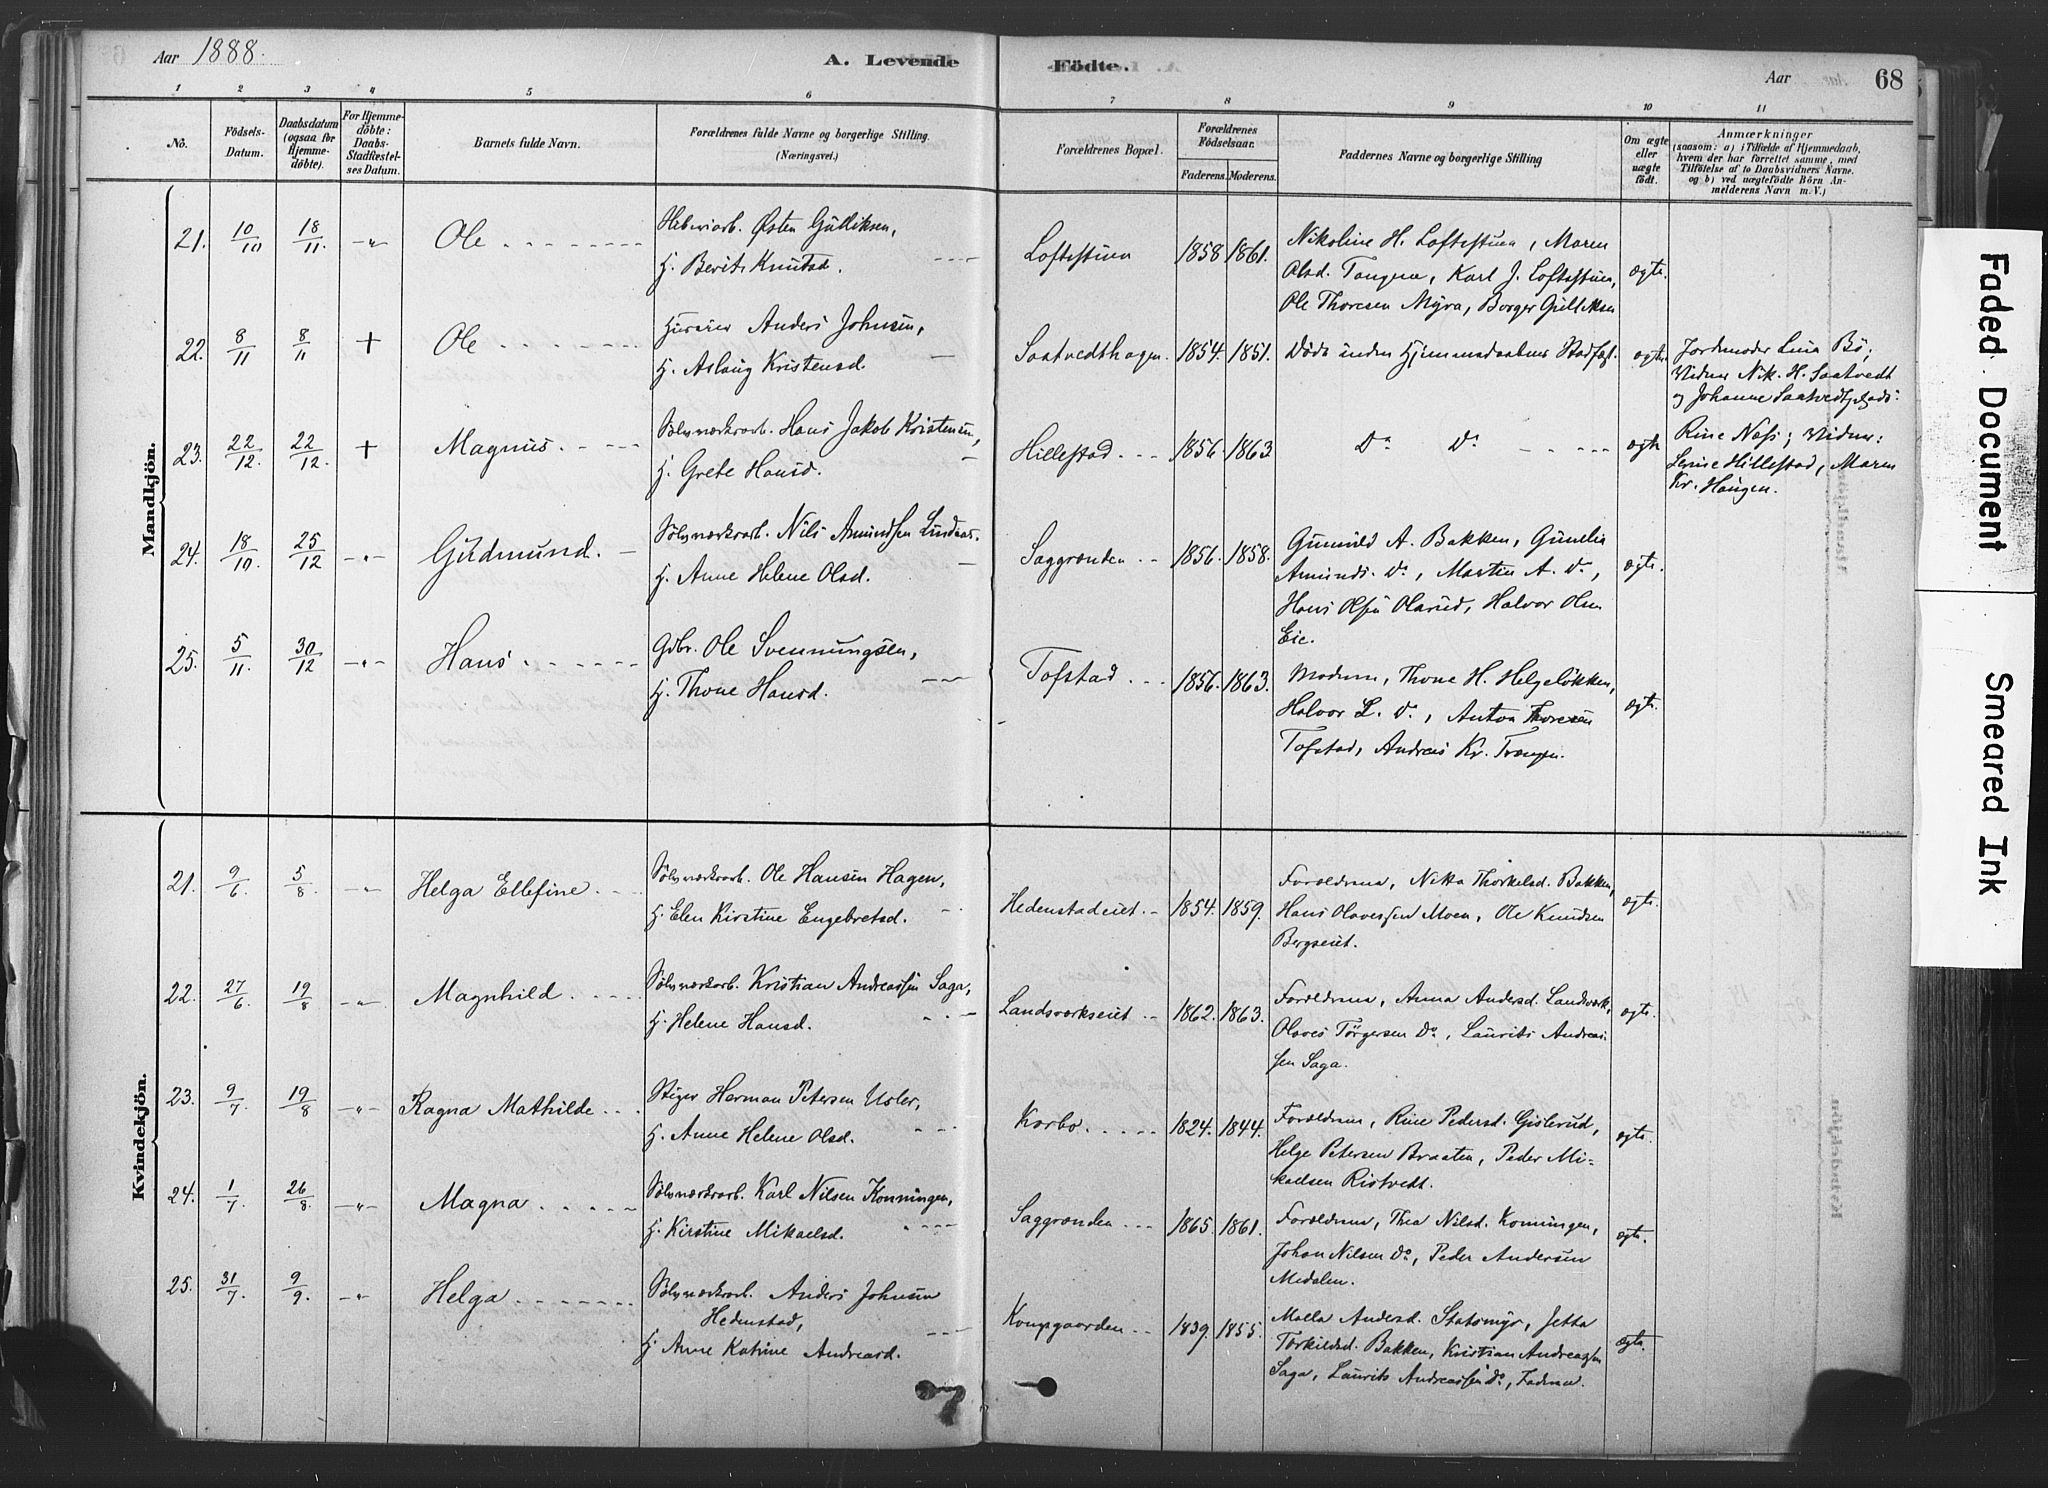 Aar 1888.
A. Levende
Födte.
Aar
68
1 2 3 4 5 6 7 8 9 10 11
No.
Födsels-
Datum.
Daabsdatum
(ogsaa for
Hjemme-
döbte).
For Hjemme-
döbte:
Daabs-
Stadfæstel-
ses Datum.
Barnets fulde Navn.
Forældrenes fulde Navne og borgerlige Stilling.
(Næringsvei.)
Forældrenes Bopæl.
Forældrenes
Födselsaar.
Faderens. Moderens.
Faddernes Navne og borgerlige Stilling
Om ægte
eller
uægte
födt.
Anmærkninger
(saasom: a) i Tilfælde af Hjemmedaab,
hvem der har forrettet samme, med
Tilföielse af to Daabsvidners Navne.
og b) ved uægtefödte Börn An-
melderens Navn m. V.)
Mandkjön.
21. 10/10 18/11 -"- Ole
Østen Gulliksen,
H. Berit Knutsd.
Loftsstuen 1858 1861.
Nikoline H. Loftsstuen, Maren
Olsd. Tangen, Karl J. Loftsstuen,
Ole Thoresen Myra, Borger Gulliksen
ægte.
22. 8/11 8/11 + Ole
Husmr Anders Johnsen,
H. Aslaug Kristensd.
Saatvedthagen. 1854. 1851.
Døde inden Hjemmedaabens Stadfæst.
ægte.
Jordmoder Lina Bö;
Vidner Nik. H. Saatvedt
og Johanne Saatvedt
23. 22/12. 22/12. + Magnus.
Sölvværksarb. Hans Jakob Kristensen,
H. Grete Hansd.
Hillestad 1856. 1863.
Do Do
ægte
Rine Næss; Vidner:
Hillestad, Maren
Kr. Haugen.
24. 18/10 25/12 -"- Gudmund.
Sölvværksarb. Nils Amundsen Lindaas.
H. Anne Helene Olsd.
Saggrenden 1856. 1858.
Gunnild A. Bakken, Gunelia
Amunds. Do, Martin A. Do,
Hans Olsen Olsrud, Halvor Olsen
Eie.
ægte.
25. 5/11. 30/12 -"- Hans
Gdbr. Ole Svennungsen,
H. Thone Hansd.
Tofstad 1856. 1863.
Modren, Thone H. Helgelökken,
Halvor L. Do, Anton Thoresen
Tofstad, Andreas Kr. Trangen.
ægte.
Kvindekjön.
21. 9/6 5/8 -"- Helga Ellefine
Sölvværksarb. Ole Hansen Hagen,
H. Elen Kirstine Engebretsd.
Hedenstadeiet. 1854. 1859.
Forældrene, Netta Thorkelsd. Bakken,
Hans Olavessen Moen, Ole Knudsen
Bergseiet.
ægte.
22. 27/6 19/8 -"- Magnhild
Sölvværksarb. Kristian Andreassen Saga,
H. Helene Hansd.
Landsverkseiet 1862. 1863.
Forældrene, Anna Andersd. Landsverk,
Olaves Törgersen Do, Laurits Andreas-
sen Saga.
ægte.
23. 9/7 19/8 -"- Ragna Mathilde
Stiger Herman Petersen Usler,
H. Anne Helene Olsd.
Korbo 1824. 1844.
Forældrene, Rine Pedersd. Gislerud,
Helge Petersen Braaten, Peder Mi-
kaelsen Ristvedt.
ægte.
24. 1/7 26/8. -"- Magna
Sölvværksarb. Karl Nilsen Konningen,
H. Kirstine Mikaelsd.
Saggrenden 1865. 1861.
Forældrene, Thea Nilsd. Konningen,
Johan Nilsen Do, Peder Andersen
Medalen.
ægte.
25. 31/7. 9/9. -"- Helga
Sölvværksarb. Anders Johnsen
Hedenstad,
H. Anne Katrine Andreasd.
Kompgaarden 1839. 1855.
Malla Andersd. Statsmyr, Jetta
Torkildsd. Bakken, Kristian Andreassen
Saga, Laurits Andreassen Do, Fadren.
ægte.
Faded Document
Smeared Ink